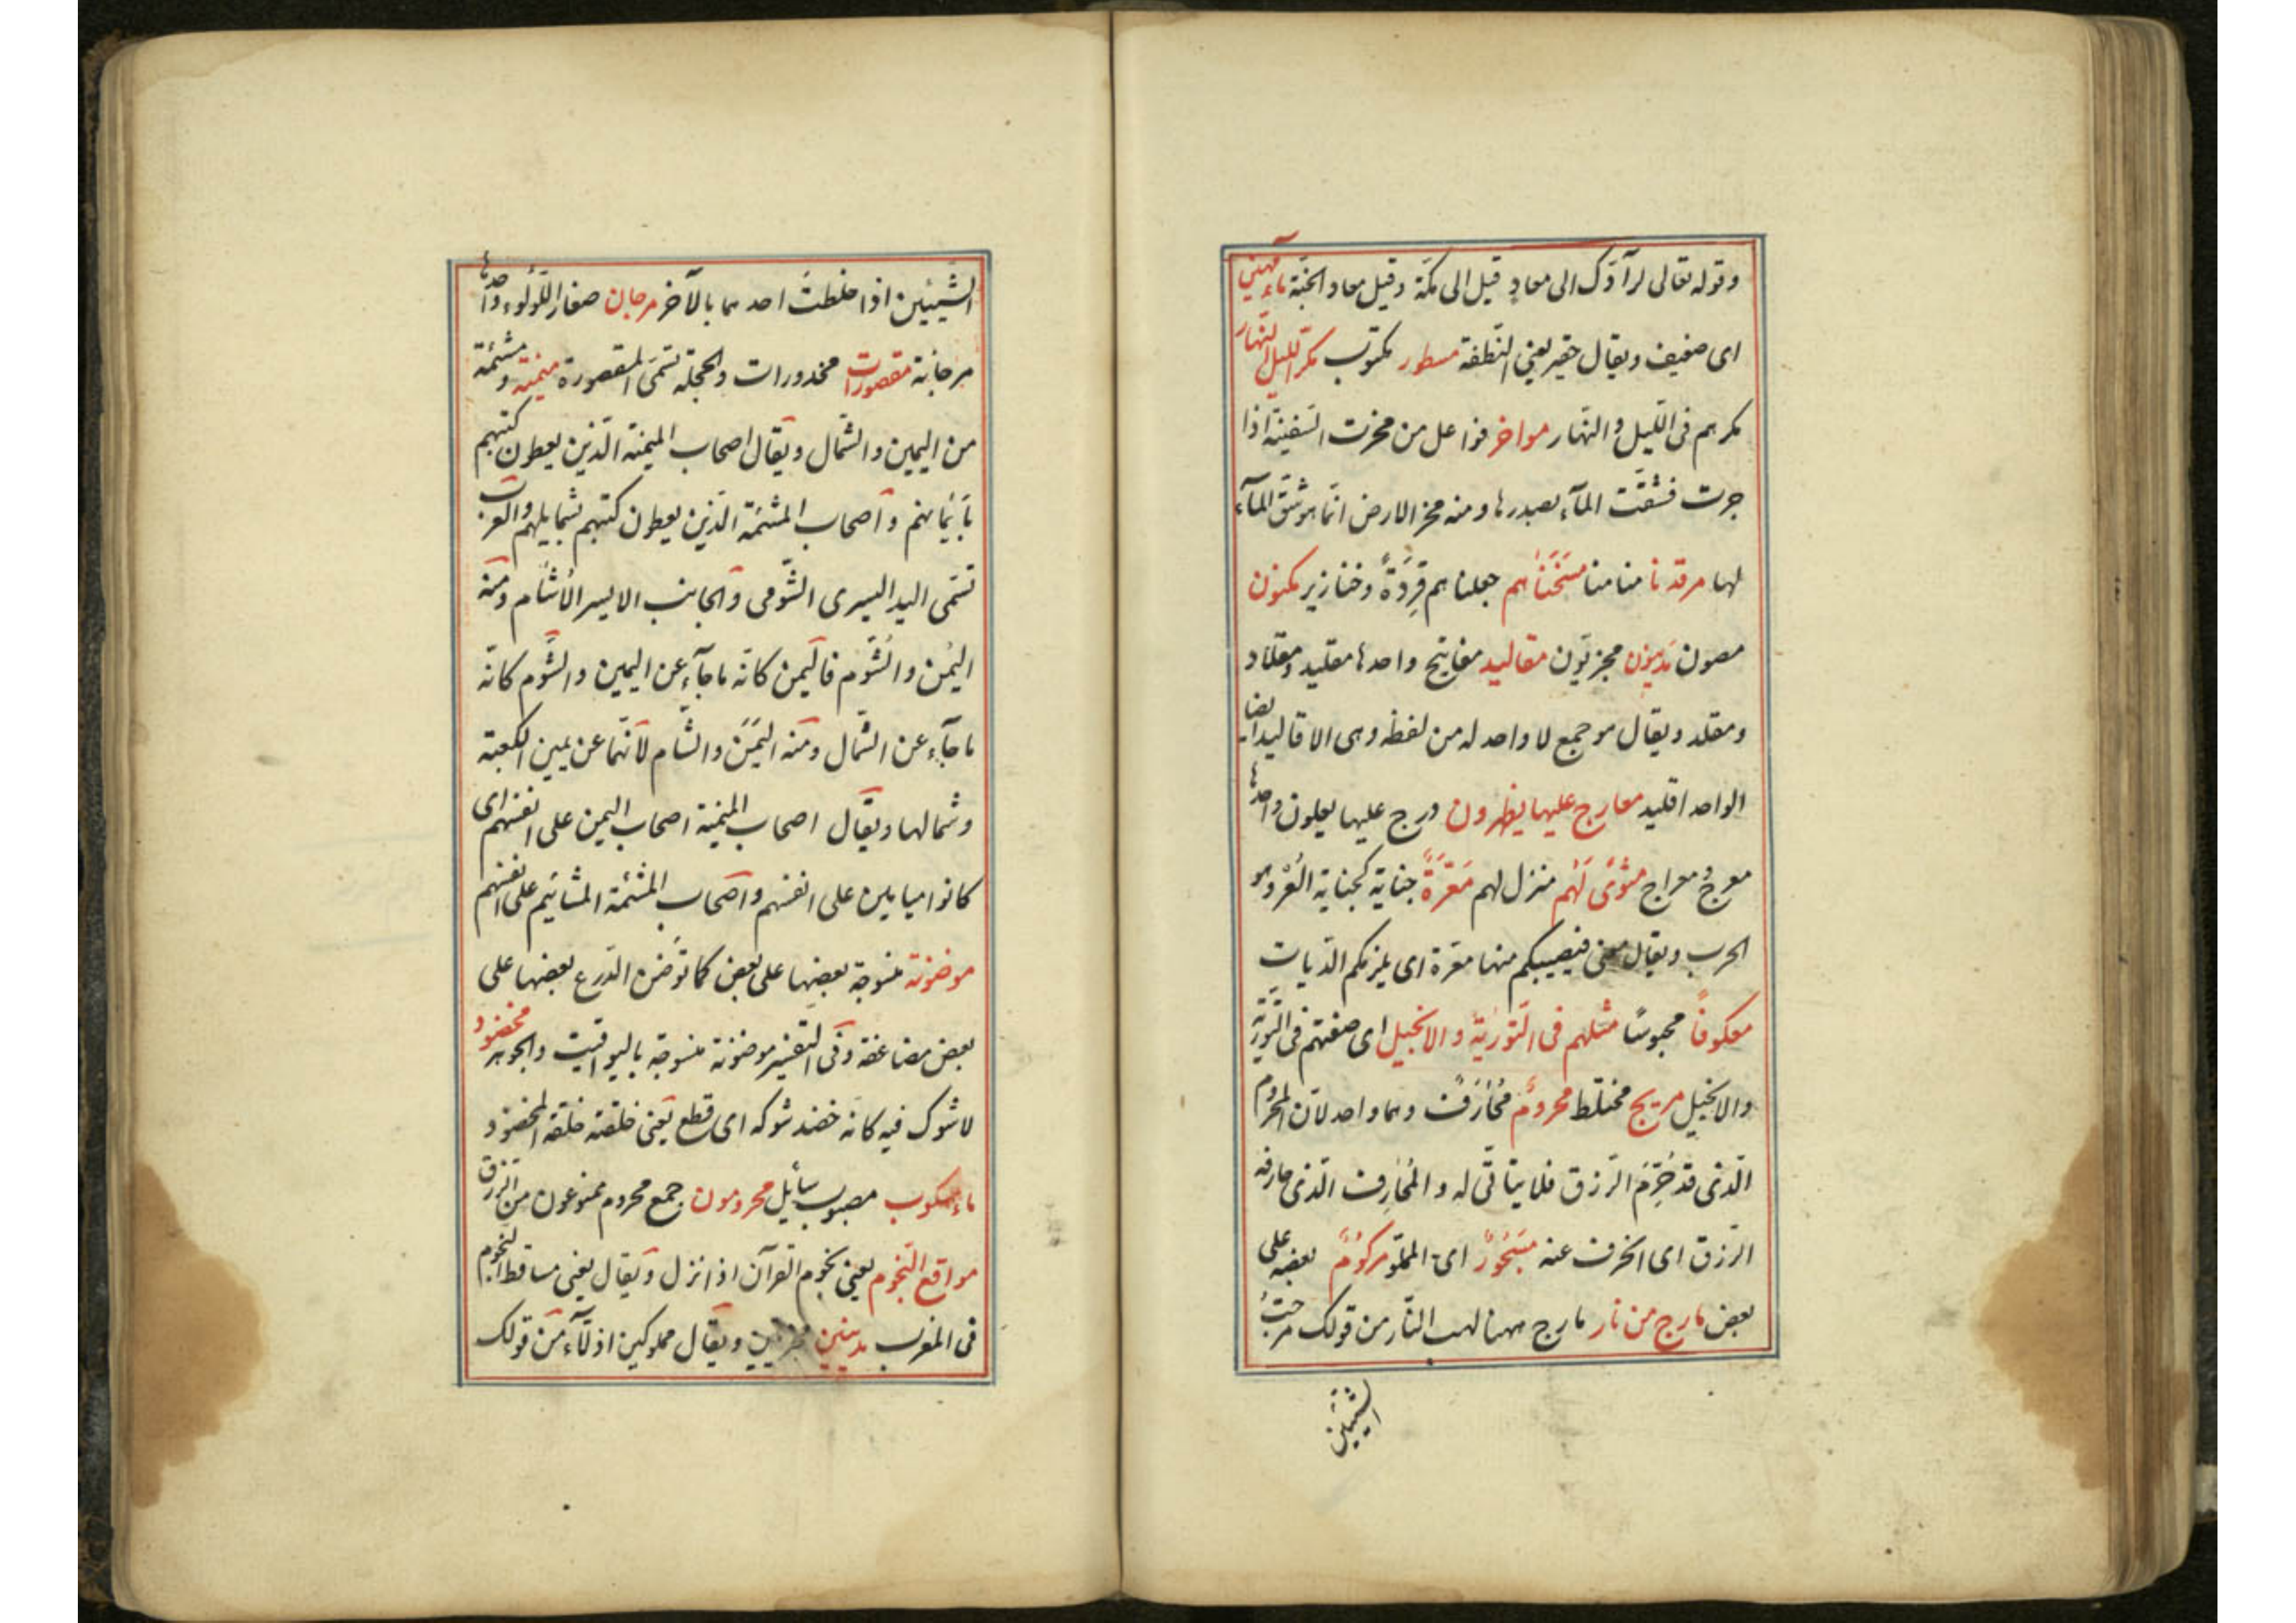 وقوله تعالى لرآدّك الى معادٍ قيل الى مكّة وقيل معاد الجنّة ماء مهين
اى ضعيف ويقال حقير يعنى النّطفة مسطور مكتوب مكر اللّيل والنّهار
مكرهم فى اللّيل والنّهار مواخر فواعل من مخرت السّفينة اذا
جرت فشقّت المآء بصدرها ومنه مخر الارض انّما هو شقّ المآء
لها مرقدنا منامنا مَسَخْنَاهم جعلناهم قِرَدَةً وخنازير مكنون
مصون مَدِينون مجزيّون مقاليد مفاتيح واحدها مقليد ومقلاد
ومقلد ويقال هو جمع لا واحد له من لفظه وهى الاقاليد ايضا
الواحد اقليد معارج عليها يظهرون درج عليها يعلون واحدها
معرج ومعراج مثوًى لَهُم منزل لهم مَعَرَّةٌ جناية كجناية العُرّ وهو
الجرب ويقال فتصيبكم منها معرّة اى يلزمكم الدّيات
معكوفاً محبوسًا مثلهم فى التّورية والانجيل اى صفتهم فى التّورية
والانجيل مريج مختلط محرومٌ مُحَارَفٌ وهما واحد لانّ المحروم
الّذى قد حُرِمَ الرّزق فلا يتأتّى له والمُحارف الّذى حارفه
الرّزق اى انحرف عنه مَسْجُورٌ اى المملوّ مركومٌ بعضه على
بعض مارج من نار مارج ههنا لهب النّار من قولك مرجتُ
الشّيئين
الشّيئين اذا خلطتَ احدهما بالآخر مرجان صغار اللّؤلؤ واحدها
مرجانة مقصورات مخدورات والحجلة تسمّى المقصورة ميمنة ومشئمة
من اليمين والشّمال ويقال اصحاب الميمنة الّذين يعطون كتبهم
بأيمانهم واصحاب المشئمة الّذين يعطون كتبهم بشمايلهم والعرب
تسمّى اليد اليسرى الشّومى والجانب الايسر الأشأم ومنه
اليُمن والشّوم فاليمن كانّه ما جآء عن اليمين والشّوم كانّه
ما جآء عن الشّمال ومنه اليَمَنُ والشّام لانّهما عن يمين الكعبة
وشمالها ويقال اصحاب الميمنة اصحاب اليمن على انفسهم اى
كانوا ميامين على انفسهم واصحاب المشئمة المشائيم على انفسهم
موضونة منسوجة بعضها على بعض كما تُوضن الدّرع بعضها على
بعض مضاعفة وفى التّفسير موضونة منسوجة باليواقيت والجوهر مخضود
لا شوك فيه كانه خضد شوكه اى قطع يعنى خلقته خلقة المخضود
ماء مسكوب مصبوب سائل محرومون جمع محروم ممنوعون من الرّزق
مواقع النّجوم يعنى نجوم القرآن اذا نزل ويقال يعنى مساقط النّجوم
فى المغرب مدينين مجزيين ويقال مملوكين اذلّآء من قولك